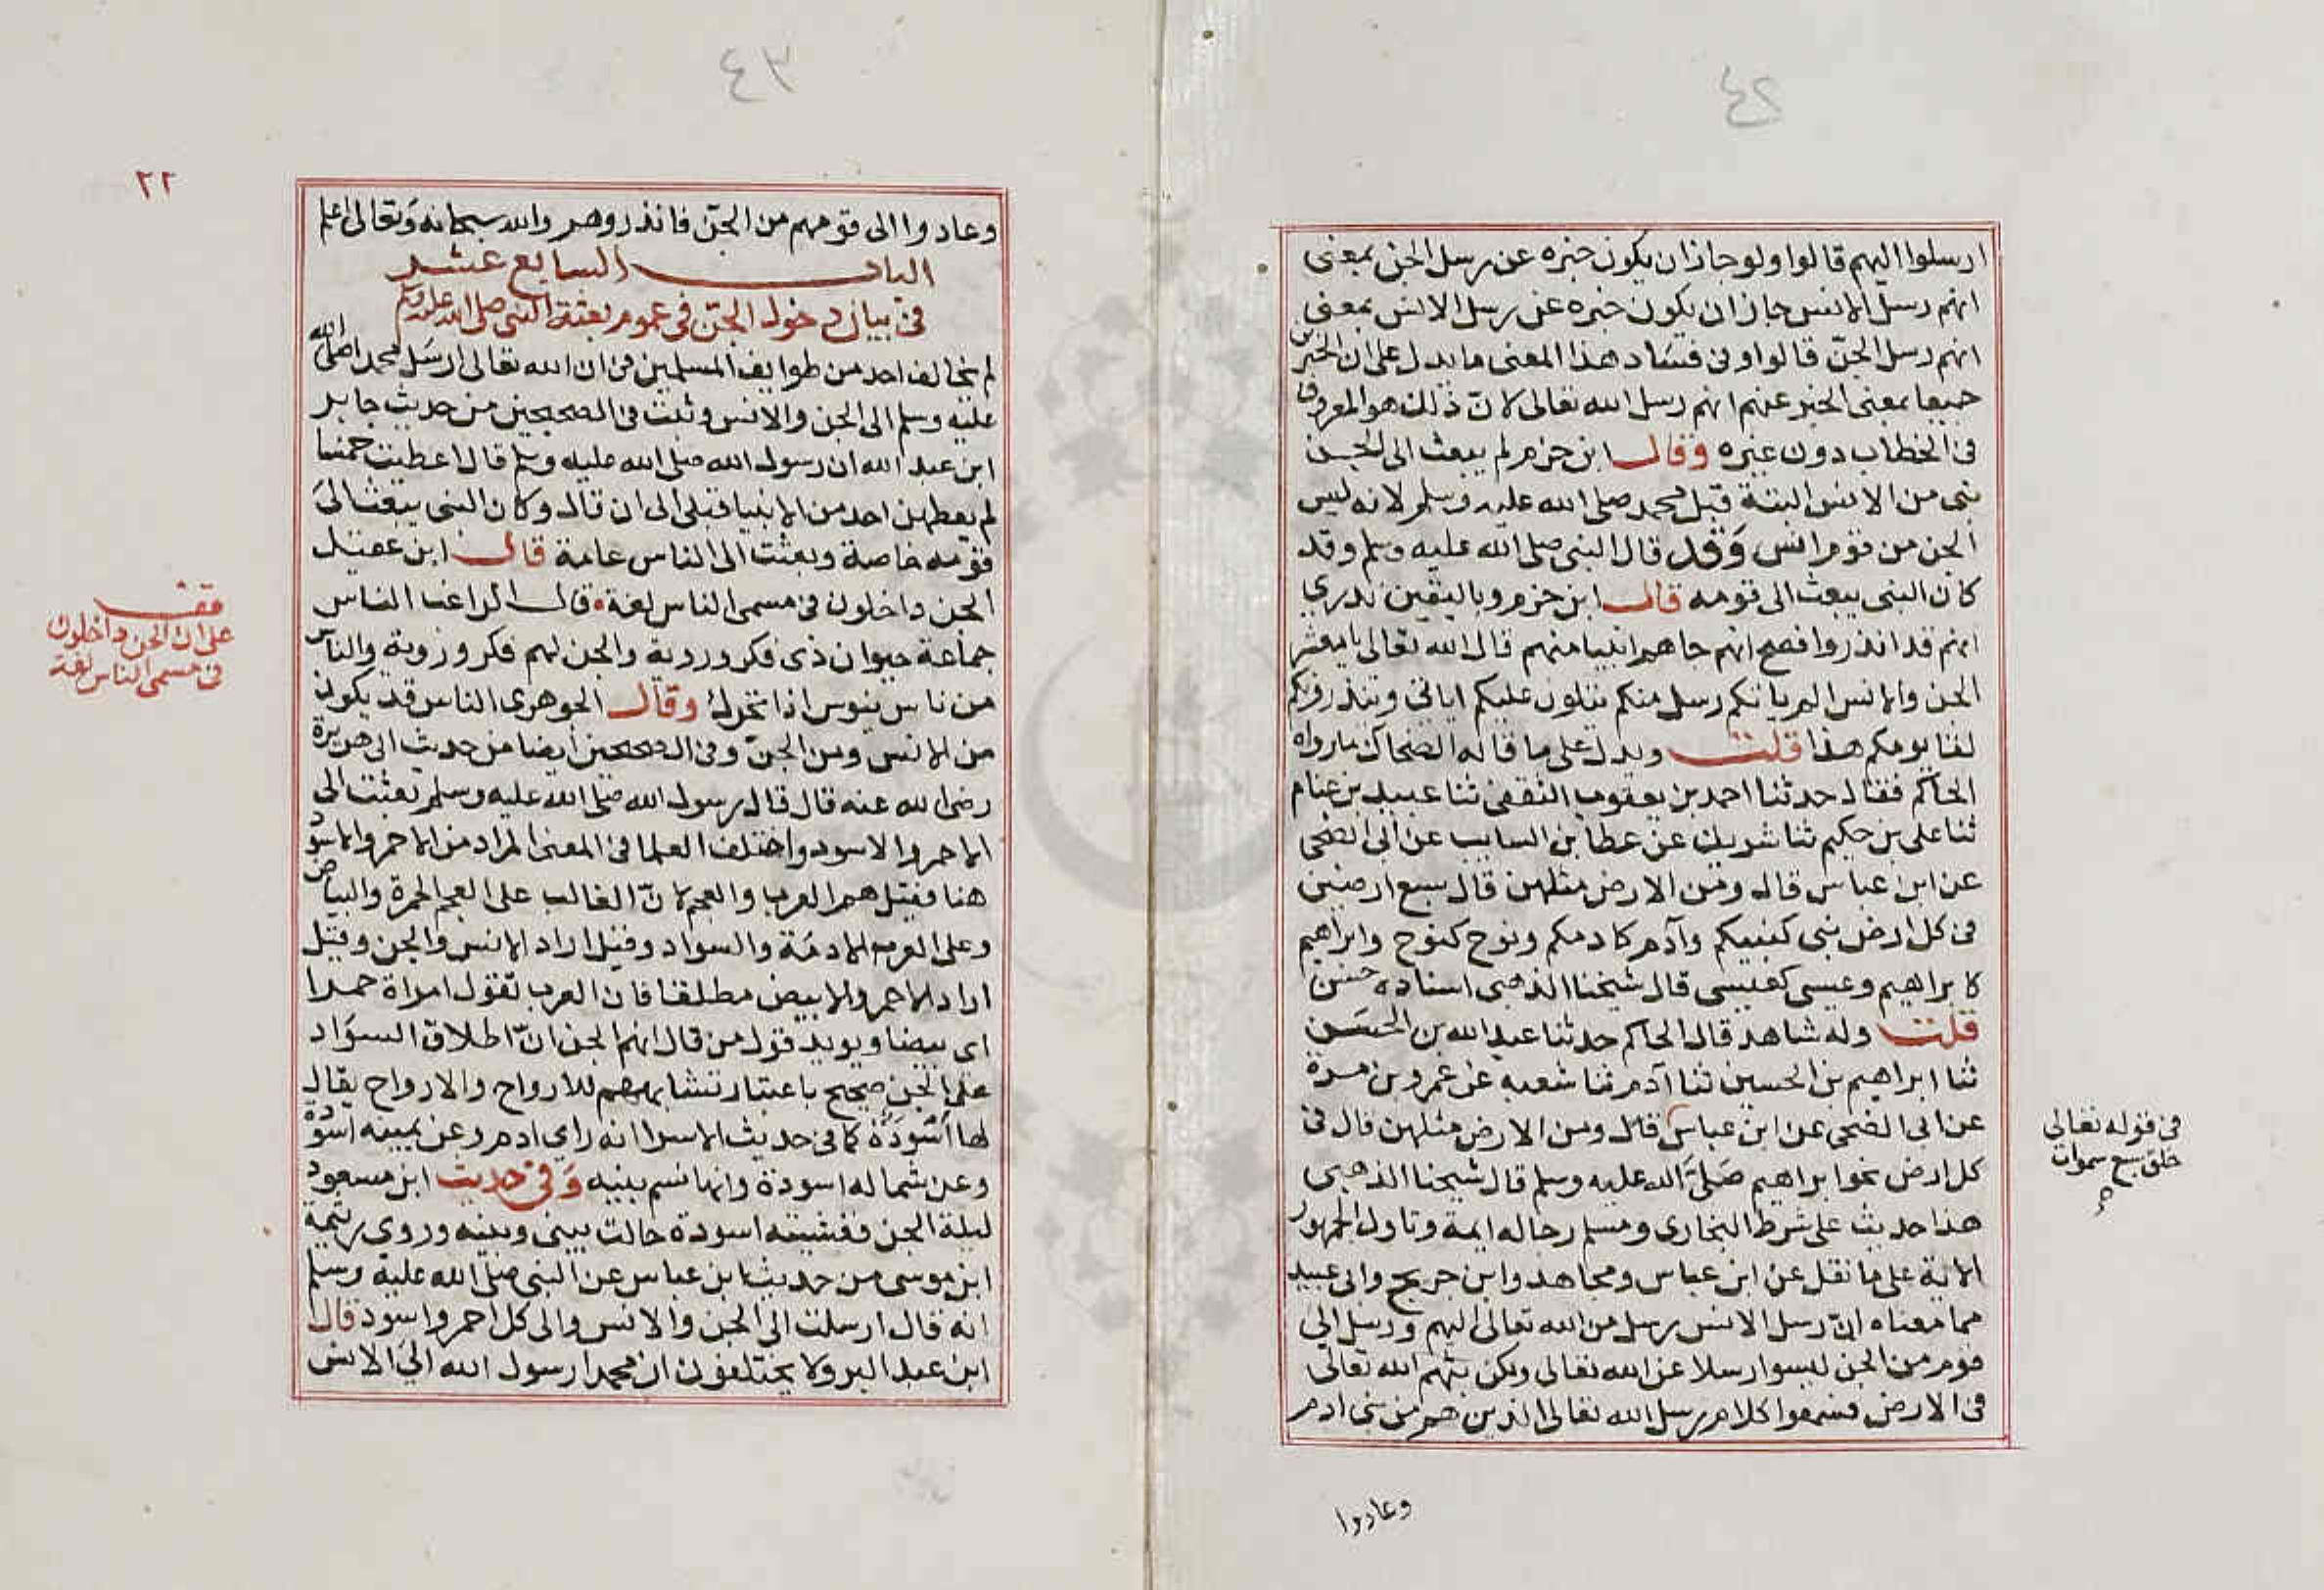 ٤٢
ارسلوا اليهم قالوا ولو جاز ان يكون خبره عن رسل الجن بمعنى
انهم رسل الانس جاز ان يكون خبره عن رسل الانس بمعنى
انهم رسل الجنّ قالوا وفى فساد هذا المعنى ما يدل على ان الخبرين
جميعا بمعنى الخبر عنهم انهم رسل الله تعالى لانّ ذلك هو المعروف
فى الخطاب دون غيره وقال ابن حزم لم يبعث الى الجن
نبى من الانس البتة قبل محمد صلى الله عليه وسلم لانه ليس
الجن من قوم انس وَقد قال النبى صلى الله عليه وسلم وقد
كان النبى يبعث الى قومه قال ابن حزم وباليقين ندرى
انهم قد انذروا فصح انهم جاهم انبيا منهم قال الله تعالى يا معشر
الجن والانس الم ياتكم رسل منكم يتلون عليكم اياتى وينذرونكم
لقا يومكم هذا قلت ويدل على ما قاله الضحاك ما رواه
الحاكم فقال حدثنا احمد بن يعقوب الثقفى ثنا عبيد بن غنام
ثنا على بن حكيم ثنا شريك عن عطا بن السايب عن ابى الضحى
عن ابن عباس قال ومن الارض مثلهن قال سبع ارضين
فى كل ارض نبى كنبيكم وآدم كادمكم ونوح كنوح وابراهيم
كابراهيم وعيسى كعيسى قال شيخنا الذهبى اسناده حسن
قلت وله شاهد قال الحاكم حدثنا عبد الله بن الحسَن
ثنا ابراهيم بن الحسين ثنا آدم ثنا شعبه عن عمرو بن مرة
عن ابى الضحى عن ابن عباس قال ومن الارض مثلهن قال فى
كل ارض نحو ابراهيم صَلىَّ الله عليه وسلم قال شيخنا الذهبى
هذا حديث على شرط البخارى ومسلم رجاله ايمة وتاول الجمهور
الاية على ما نقل عن ابن عباس ومجاهد وابن جريج وابى عبيد
مما معناه انّ رسل الانس رسل من الله تعالى اليهم ورسل الى
قوم من الجن ليسوا رسلا عن الله تعالى ولكن بثهم الله تعالى
فى الارض فسمعوا كلام رسل الله تعالى الذين هم من بنى ادم
وعادوا
فى قوله تعالى
خلق سبع سموات
٤٣
٢٢
وعادوا الى قومهم من الجنّ فانذروهم والله سبحانه وَتعالى اعلم
الباب السابع عشر
فى بيان دخول الجنّ فى عموم بعثة النبى صلى الله عليه وسلم
لم يخالف احد من طوايف المسلمين فى ان الله تعالى ارسَل محمدا صلى الله
عليه وسلم الى الجن والانس وثبت فى الصحيحين من حديث جابر
ابن عبد الله ان رسول الله صلى الله عليه وسلم قال اعطيت خمسا
لم يعطهن احد من الانبيا قبلى الى ان قال وكان النبى يبعث الىَ
قومه خاصة وبعثت الى الناس عامة قال ابن عقيل
الجن داخلون فى مسمى الناس لغة قال الراغب الناس
جماعة حيوان ذى فكر وروية والجن لهم فكر وروية والناس
من ناس ينوس اذا تحرك وقال الجوهرى الناس قد يكون
من الانس ومن الجنّ وفى الصحيحين ايضا من حديث ابى هريرة
رضى الله عنه قال قال رسول الله صلى الله عليه وسلم بعثت الى
الاحمر والاسود واختلف العلما فى المعنى المراد من الاحمر والاسود
هنا فقيل هم العرب والعجم لانّ الغالب على العجم الحمرة والبياض
وعلى العرب الادمَة والسواد وقيل اراد الانس والجن وقيل
اراد الاحمر والابيض مطلقا فان العرب تقول امراة حمرا
اى بيضا ويويد قول من قال انهم الجن انّ اطلاق السوَاد
على الجن صحيح باعتبار تشابههم للارواح والارواح يقال
لها اسْوِدَةٌ كما فى حديث الاسرا انه راى ادم وعن يمينه اسودة
وعن شماله اسودة وانها نسم بنيه وَفى حديث ابن مسعود
ليلة الجن فغشيته اسودة حالت بينى وبينه وروى رتيمة
ابن موسى من حديث ابن عباس عن النبى صلى الله عليه وسلم
انه قال ارسلت الى الجن والانس والى كل احمر واسود قال
ابن عبد البر ولا يختلفون ان محمدا رسول الله الىَ الانس
قف
على ان الجن داخلون
فى مسمى الناس لغة